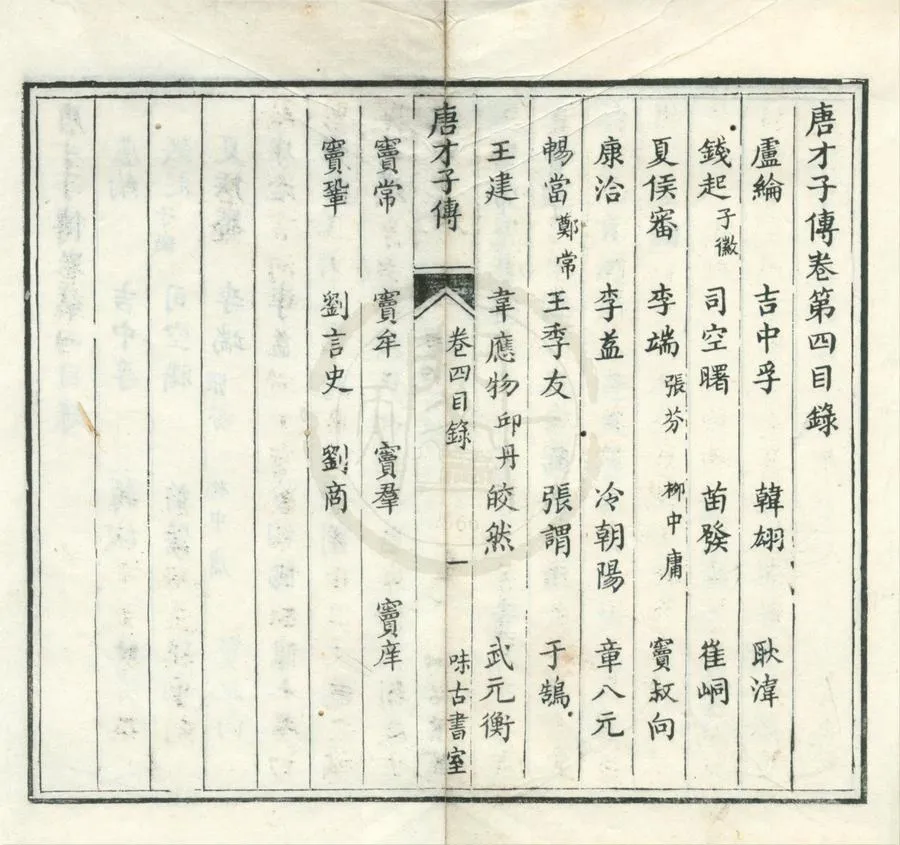 唐才子傳卷第四目錄
盧綸 吉中孚 韓翃 耿湋
錢起 子徽 司空曙 苗發 崔峒
夏侯審 李端 張芬 柳中庸 竇叔向
康洽 李益 冷朝陽 章八元
暢當 鄭常 王季友 張謂 于鵠
王建 韋應物 邱丹 皎然 武元衡
唐才子傳 卷四目錄 一 味古書室
竇常 竇牟 竇羣 竇庠
竇鞏 劉言史 劉商